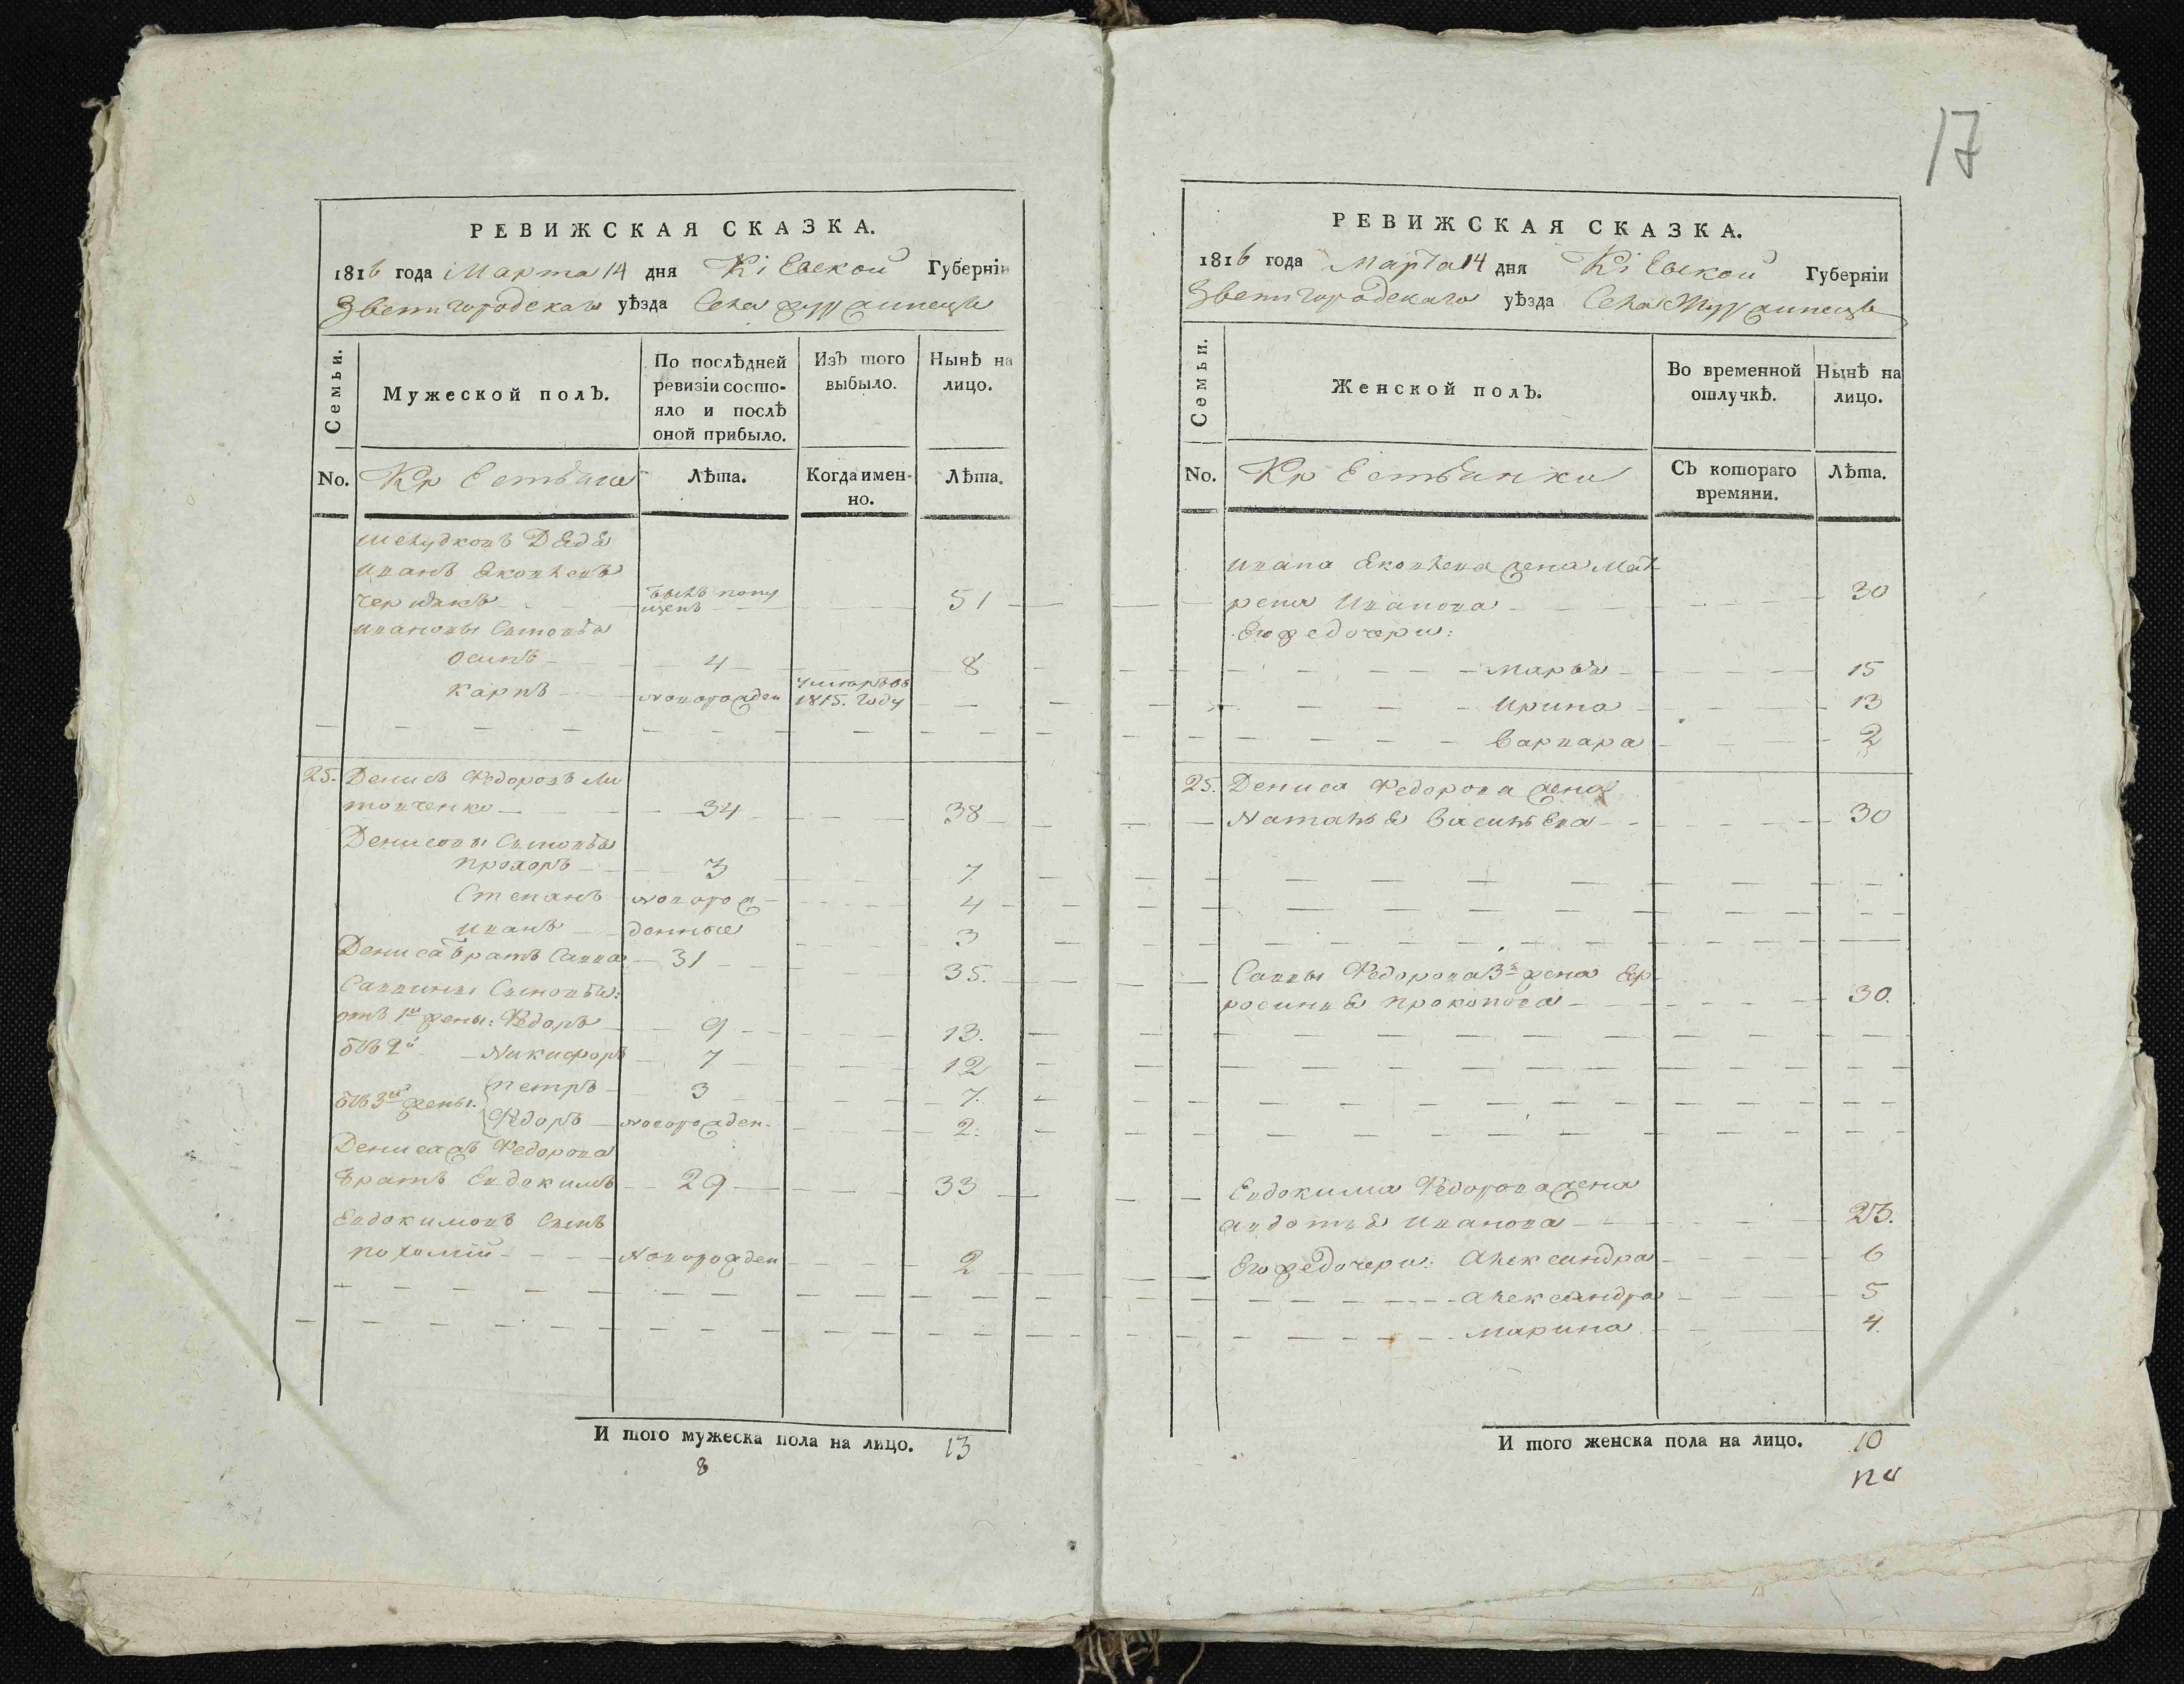 17
РЕВИЖСКАЯ СКАЗКА.
1816 года Марта 14 дня Кіевской Губерніи
Звенигородскаго уѣзда Села Журжинецъ
Семьи.
Мужеской полъ.
По послѣдней ревизіи состояло и послѣ оной прибыло.
Изъ того выбыло.
Нынѣ на лицо.
No.
Крестьяне
Лѣта.
Когда именно.
Лѣта.
Дядя
Иванъ Яковлевъ
былъ пропущенъ 51
Ивановы Сыновья
Осипъ 4 8
Карпъ новорожден умеръ въ 1815. году
25. Денисъ Федоровъ Ли
товченко 34 38
Денисовы Сыновья
Прохоръ 3 7
Степанъ новорож 4
Иванъ денные 3
Дениса братъ Савва 31 35.
Саввины Сыновья:
отъ 1й жены: Федоръ 9 13.
отъ 2й Никифоръ 7 12
отъ 3й жены. Петръ 3 7.
Федоръ новорожден. 2.
Дениса жъ Федорова
братъ Евдокимъ 29 33
Евдокимовъ Сынъ
Пахомій новорожден 2
И того мужеска пола на лицо. 13
8
РЕВИЖСКАЯ СКАЗКА.
1816 года Марта 14 дня Кіевской Губерніи
Звенигородскаго уѣзда Села Журжинецъ
Семьи.
Женской полъ.
Во временной отлучкѣ.
Нынѣ на лицо.
No.
Крестьянки
Съ котораго времяни.
Лѣта.
Ивана Яковлева жена Мат
рена Иванова 30
Его же дочери:
Марья 15
Ирина 13
Варвара 2
25. Дениса Федорова жена
Наталья Васильева 30
Саввы Федорова 3я жена Еф
росинья Прокопова 30.
Евдокима Федорова жена
Авдотья Иванова 23.
Его же дочери: Александра 6
Александра 5
Марина 4.
И того женска пола на лицо. 10